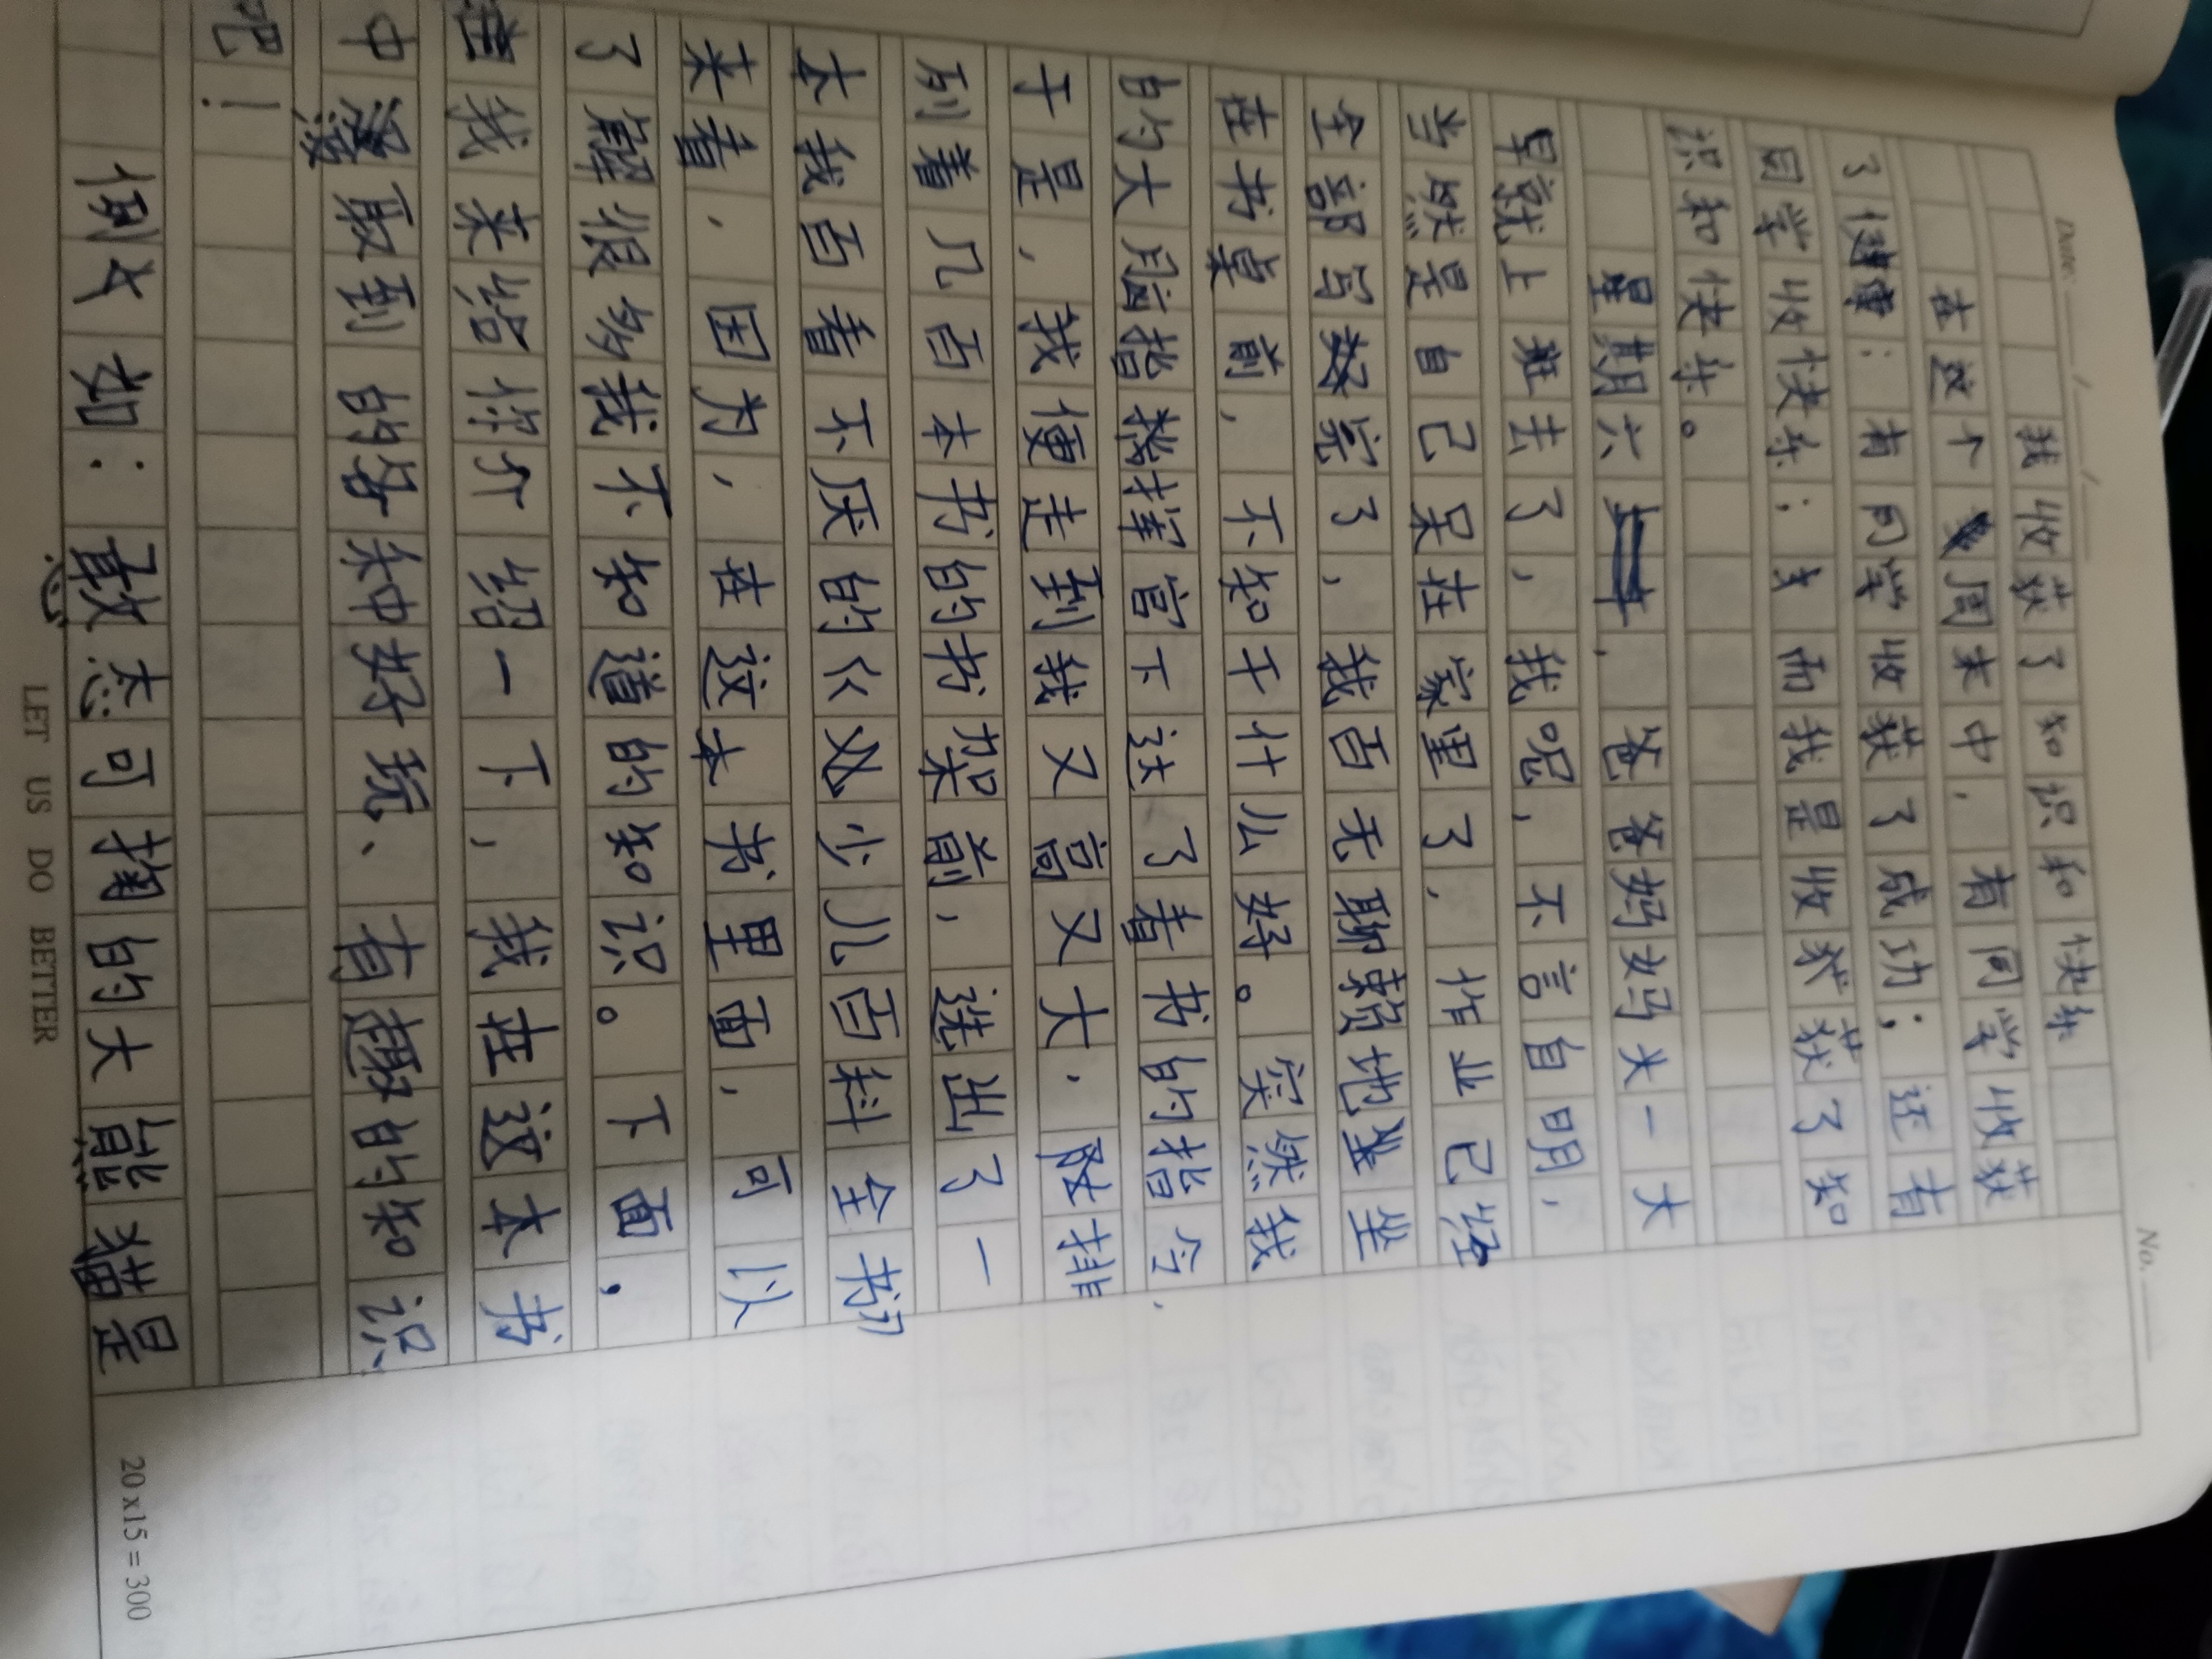 Date: No.
我收获了知识和快乐
在这个周末中，有同学收获
了健康；有同学收获了成功；还有
同学收快乐；而我是收获了知
识和快乐。
星期六，爸爸妈妈大一大
早就上班去了，我呢，不言自明，
当然是自己呆在家里了，作业已经
全部写完了，我百无聊赖地坐
在书桌前，不知干什么好。突然我
的大脑指挥官下达了看书的指令，
于是，我便走到我又高又大，陈排
列着几百本书的书架前，选出了一
本我百看不厌的《少儿百科全书》
来看，因为，在这本书里面，可以
了解很多我不知道的知识。下面，
我来给你介绍一下，我在这本书
中汲取到的好玩、有趣的知识
吧！
例如：憨态可掬的大熊猫是
LET US DO BETTER
20x15=300